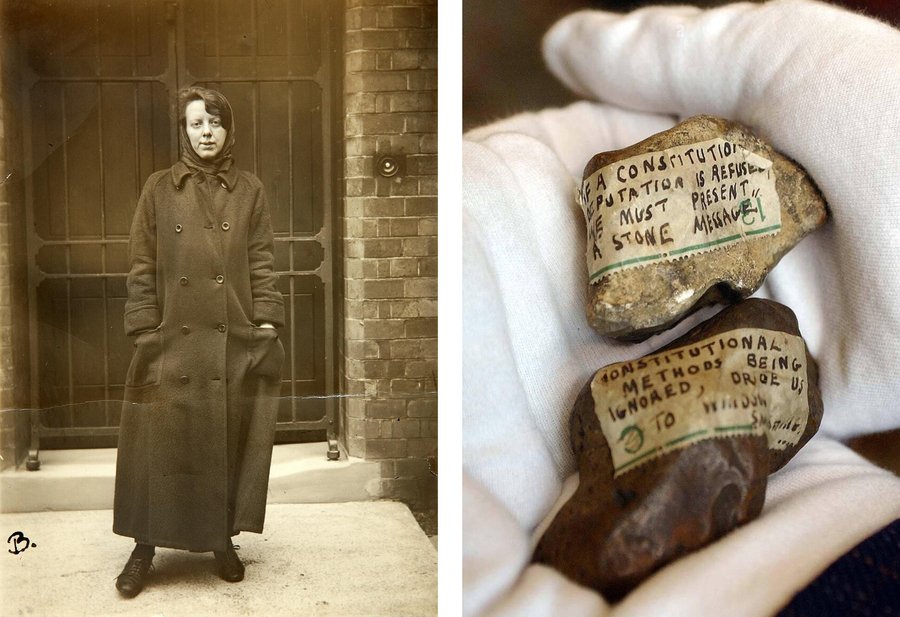 B.
A CONSTITUTION
DEPUTATION IS REFUSED
WE MUST PRESENT
A STONE MESSAGE"
13
CONSTITUTIONAL
METHODS BEING
IGNORED, DRIVE US
TO WINDOW